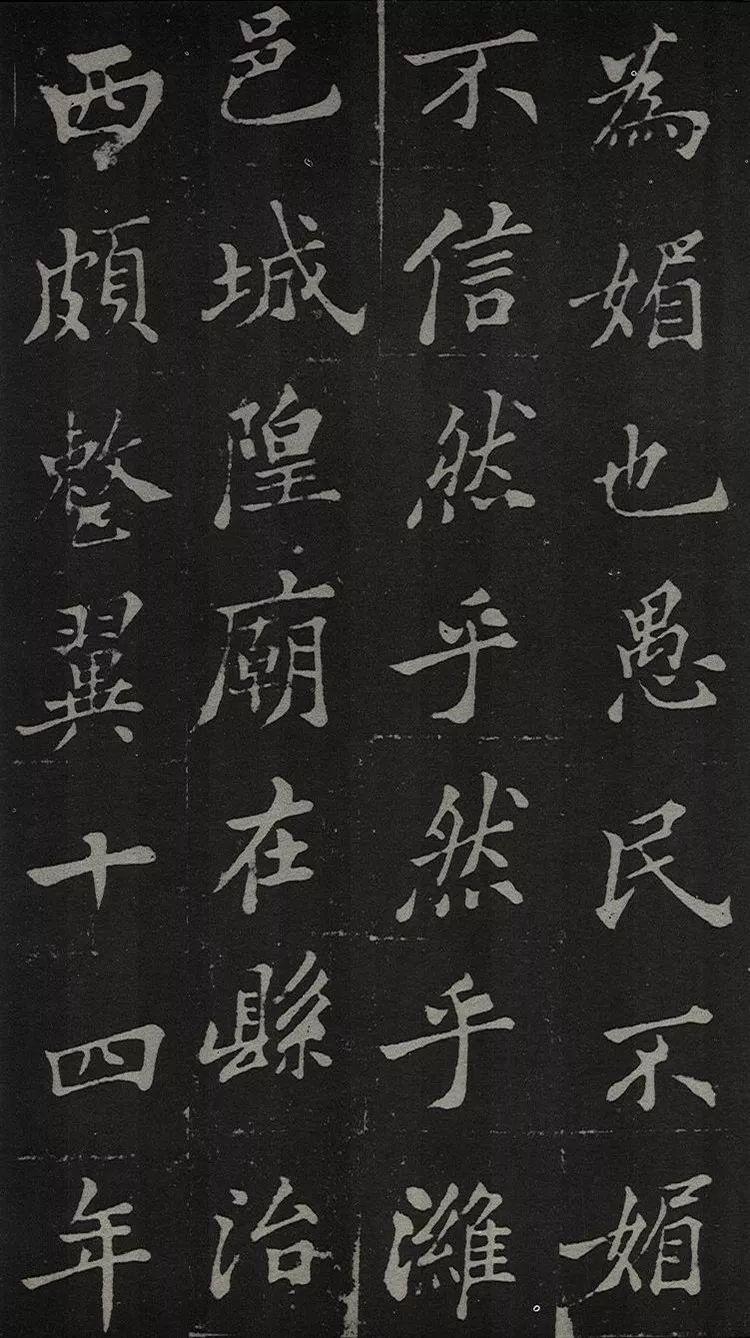 為媚也愚民不媚
不信然乎然乎濰
邑城隍廟在縣治
西頗整翼十四年